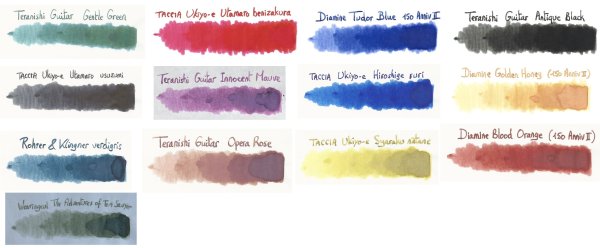 Teranishi Guitar Gentle Green
TACCIA Ukiyo-e Utamaro benizakura
Diamine Tudor Blue 150 Anniv II
Teranishi Guitar Antique Black
TACCIA Ukiyo-e Utamaro usuzumi
Teranishi Guitar Innocent Mauve
TACCIA Ukiyo-e Hiroshige ruri
Diamine Golden Honey (150 Anniv II)
Rohrer & Klingner verdigris
Teranishi Guitar Opera Rose
TACCIA Ukiyo-e Syaraku natane
Diamine Blood Orange (150 Anniv II)
Wearingeul The Adventures of Tom Sawyer